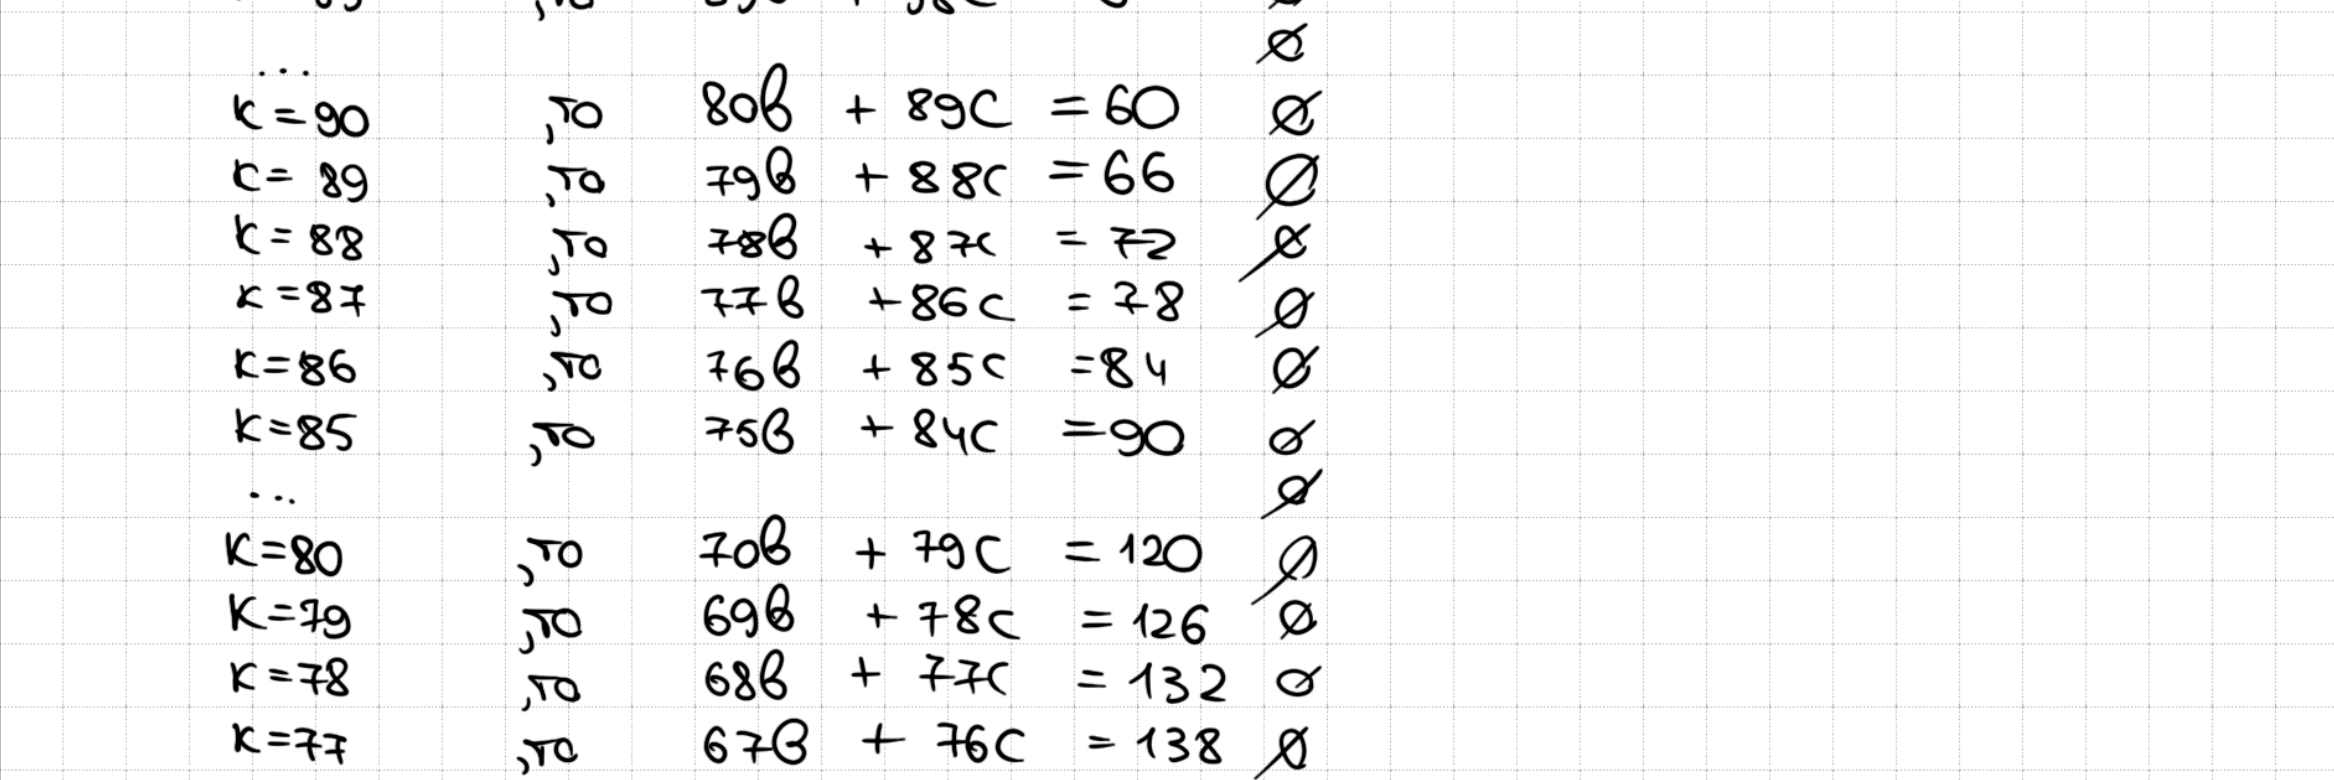 ∅
...
K=90 ,то 80в + 89с = 60 ∅
K=89 ,то 79в + 88с = 66 ∅
K=88 ,то 78в + 87с = 72 ∅
K=87 ,то 77в + 86с = 78 ∅
K=86 ,то 76в + 85с = 84 ∅
K=85 ,то 75в + 84с = 90 ∅
... ∅
K=80 ,то 70в + 79с = 120 ∅
K=79 ,то 69в + 78с = 126 ∅
K=78 ,то 68в + 77с = 132 ∅
K=77 ,то 67в + 76с = 138 ∅